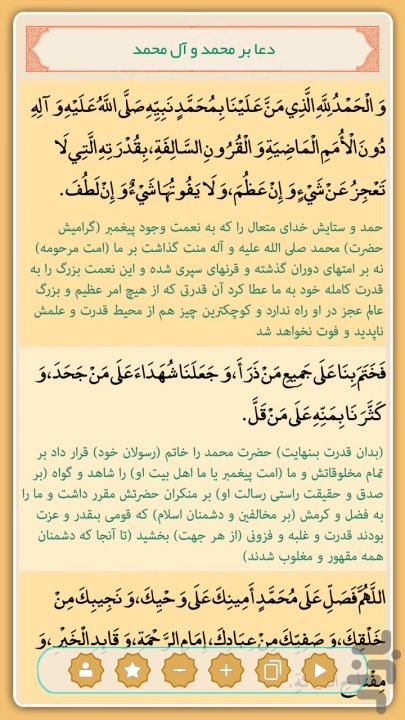 دعا بر محمد و آل محمد
وَ الْحَمْدُ لِلَّهِ الَّذِي مَنَّ عَلَيْنَا بِمُحَمَّدٍ نَبِيِّهِ صَلَّى اللَّهُ عَلَيْهِ وَ آلِهِ
دُونَ الْأُمَمِ الْمَاضِيَةِ وَ الْقُرُونِ السَّالِفَةِ، بِقُدْرَتِهِ الَّتِي لَا
تَعْجِزُ عَنْ شَيْءٍ وَ إِنْ عَظُمَ، وَ لَا يَفُوتُهَا شَيْءٌ وَ إِنْ لَطُفَ.
حمد و ستایش خدای متعال را که به نعمت وجود پیغمبر (گرامیش
حضرت) محمد صلی الله علیه و آله منت گذاشت بر ما (امت مرحومه)
نه بر امتهای دوران گذشته و قرنهای سپری شده و این نعمت بزرگ را به
قدرت کامله خود به ما عطا کرد آن قدرتی که از هیچ امر عظیم و بزرگ
عالم عجز در او راه ندارد و کوچکترین چیز هم از محیط قدرت و علمش
ناپدید و فوت نخواهد شد
فَخَتَمَ بِنَا عَلَى جَمِيعِ مَنْ ذَرَأَ، وَ جَعَلَنَا شُهَدَاءَ عَلَى مَنْ جَحَدَ، وَ
كَثَّرَنَا بِمَنِّهِ عَلَى مَنْ قَلَّ.
(بدان قدرت بینهایت) حضرت محمد را خاتم (رسولان خود) قرار داد بر
تمام مخلوقاتش و ما (امت پیغمبر یا ما اهل بیت او) را شاهد و گواه (بر
صدق و حقیقت راستی رسالت او) بر منکران حضرتش مقرر داشت و ما را
به فضل و کرمش (بر مخالفین و دشمنان اسلام) که قومی بیقدر و عزت
بودند قدرت و غلبه و فزونی (از هر جهت) بخشید (تا آنجا که دشمنان
همه مقهور و مغلوب شدند)
اللَّهُمَّ فَصَلِّ عَلَى مُحَمَّدٍ أَمِينِكَ عَلَى وَحْيِكَ، وَ نَجِيبِكَ مِنْ
خَلْقِكَ، وَ صَفِيِّكَ مِنْ عِبَادِكَ، إِمَامِ الرَّحْمَةِ، وَ قَائِدِ الْخَيْرِ، وَ